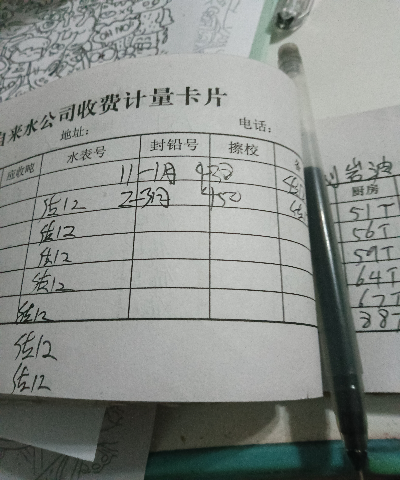 自来水公司收费计量卡片
地址: 电话:
应收吨 水表号 封铅号 擦校
11-1月
佶12 2-3月 450
佶12
佶12
佶12
佶12
佶12
佶12
厨房
51T
56T
59T
64T
67T
88T